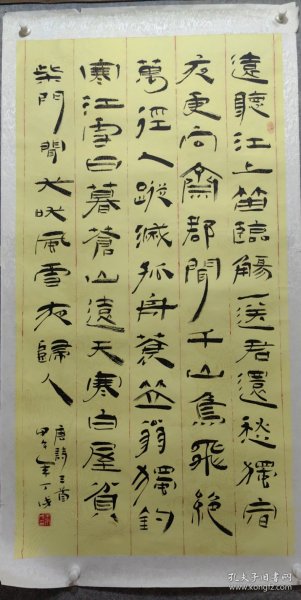 遠聽江上笛臨觴一送君還愁獨宿
夜更向齋郡聞千山鳥飛絕
萬徑人蹤滅孤舟蓑笠翁獨釣
寒江雪日暮蒼山遠天寒白屋貧
柴門聞犬吠風雪夜歸人
唐詩三首
甲午年丁
孔夫子旧书网